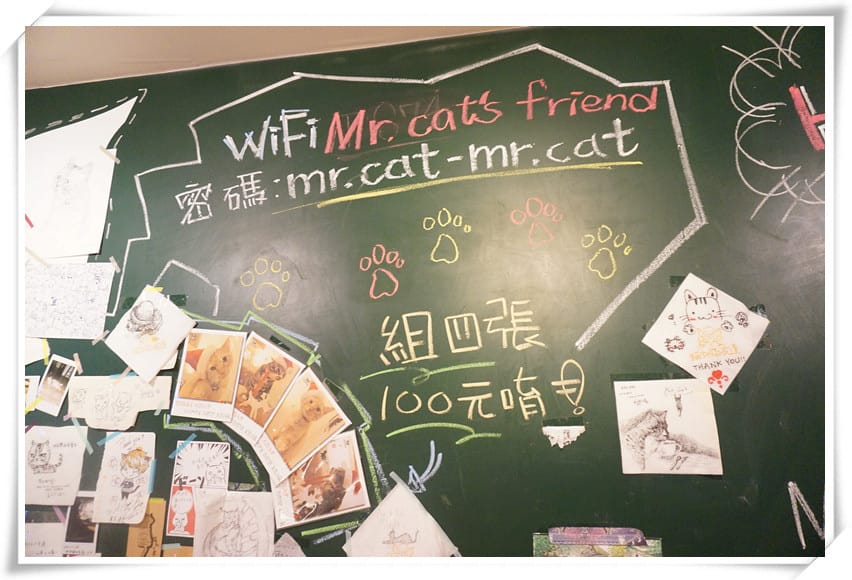 WiFi Mr. cat's friend
密碼:mr.cat-mr.cat
組四張
100元唷!
THANK YOU!!